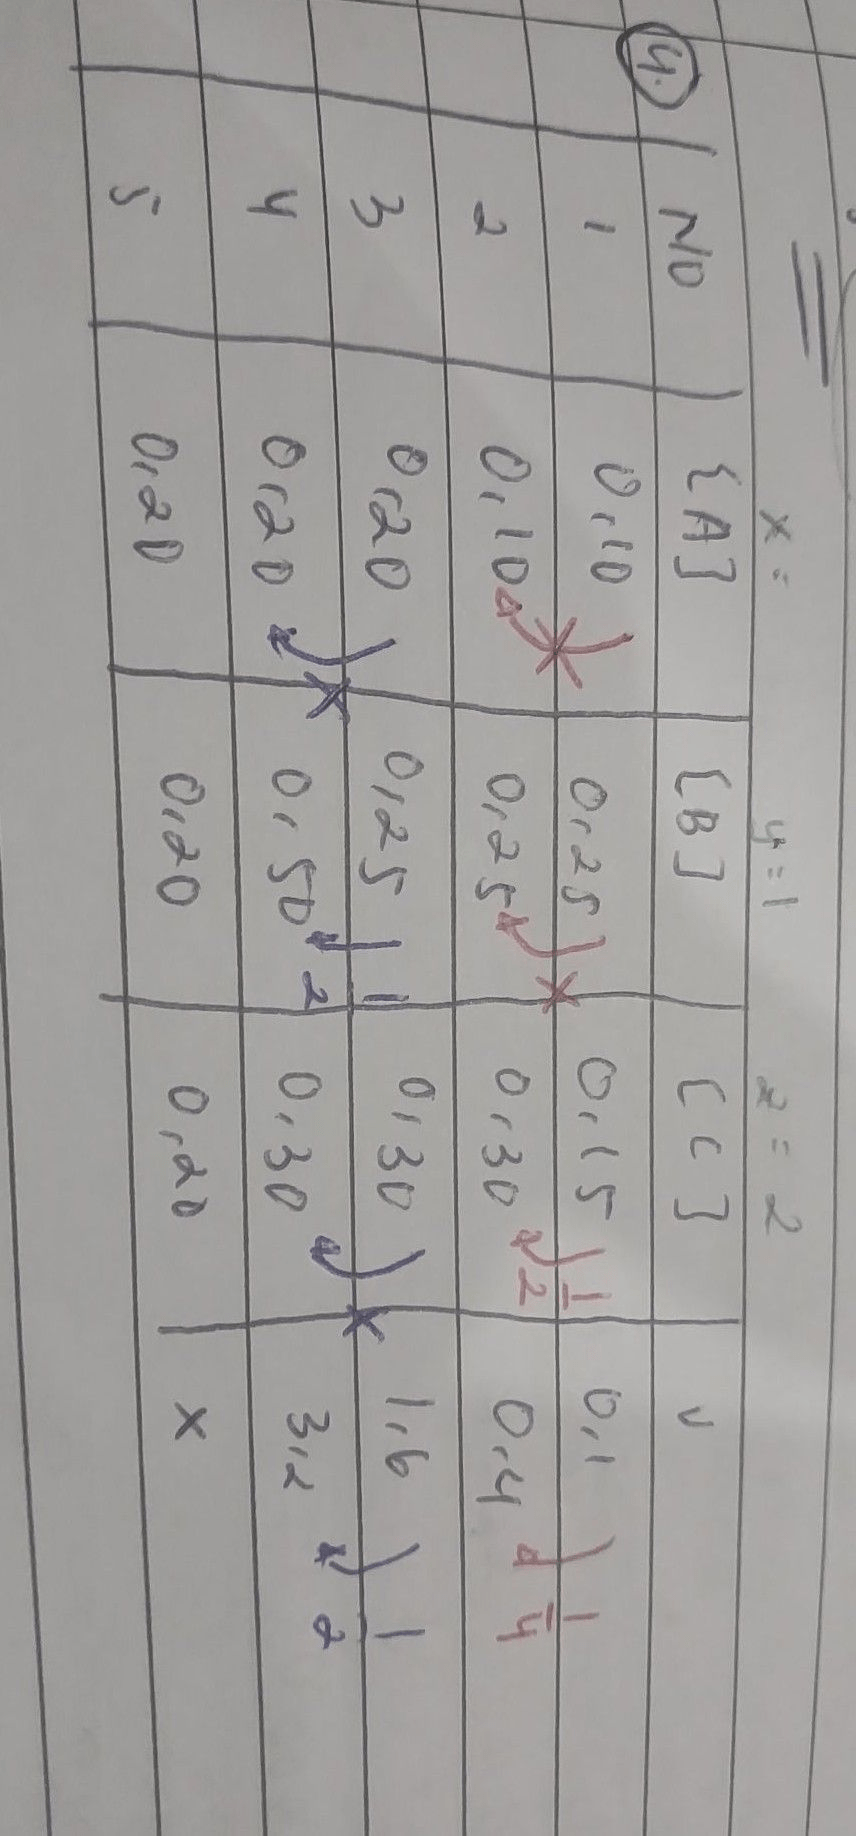 x = y = 1 z = 2
4. NO [A] [B] [C] v
1 0,10 0,25 0,15 1 0,1 1
2 0,10 0,25 0,30 2 0,4 4
3 0,20 0,25 1 0,30 1,6 1
4 0,20 0,50 2 0,30 3,2 2
5 0,20 0,20 0,20 x